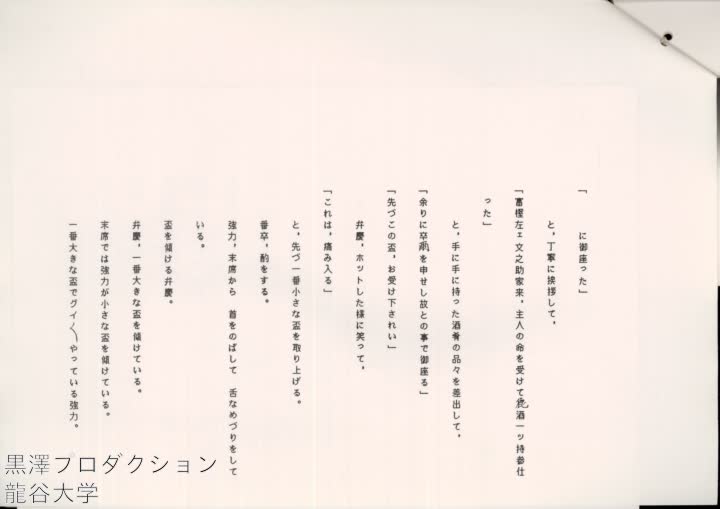 「　　に御座った」
と、丁寧に挨拶して、
「富樫左ェ文之助家来、主人の命を受けて酒一ッ持参仕
った」
と、手に手に持った酒肴の品々を差出して、
「余りに卒爾を申せし故との事で御座る」
「先づこの盃、お受け下されい」
弁慶、ホットした様に笑って、
「これは、痛み入る」
と、先づ一番小さな盃を取り上げる。
番卒、酌をする。
強力、末席から　首をのばして　舌なめづりをして
いる。
盃を傾ける弁慶。
弁慶、一番大きな盃を傾けている。
末席では強力が小さな盃を傾けている。
一番大きな盃でグイ〳〵やっている強力。
黒澤プロダクション
龍谷大学